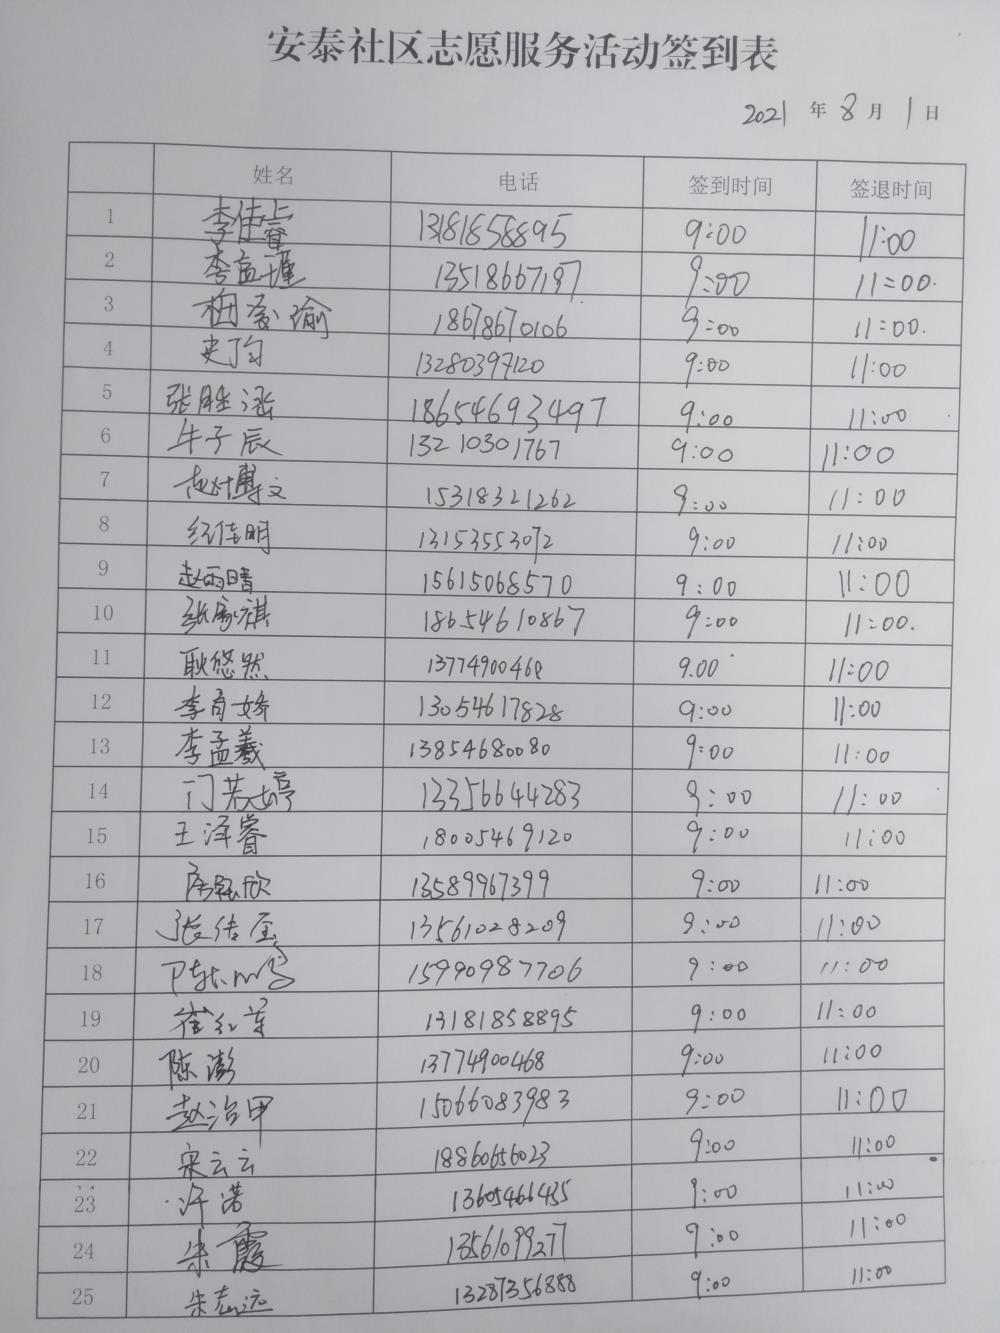 安泰社区志愿服务活动签到表
2021 年 8 月 1 日
姓名 电话 签到时间 签退时间
1 李佳睿 13181858895 9:00 11:00
2 李孟瑾 13518667197 9:00 11:00.
3 18678670106 9:00 11:00.
4 史丁勻 13280397120 9:00 11:00
5 张胜涨 18654693497 9:00 11:00
6 牛子辰 13210301767 9:00 11:00
7 赵博文 15318321262 9:00 11:00
8 纪佳明 13153553072 9:00 11:00
9 赵雨晴 15615068570 9:00 11:00
10 张家祺 18654610867 9:00 11:00.
11 耿悠然 13774900468 9.00 11:00
12 李育娇 13054617828 9:00 11:00
13 李孟羲 13854680080 9:00 11:00
14 门若婷 13356644283 9:00 11:00
15 王泽睿 18005469120 9:00 11:00
16 13589967399 9:00 11:00
17 13561028209 9:00 11:00
18 15990987706 9:00 11:00
19 崔红莲 13181858895 9:00 11:00
20 陈澎 13774900468 9:00 11:00
21 赵治甲 15066083983 9:00 11:00
22 宋云云 18860656023 9:00 11:00
23 许诺 13605466435 9:00 11:00
24 朱霞 13561099277 9:00 11:00
25 朱志远 13287356888 9:00 11:00